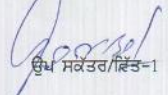 ਉਪ ਸਕੱਤਰ/ਵਿੱਤ-1